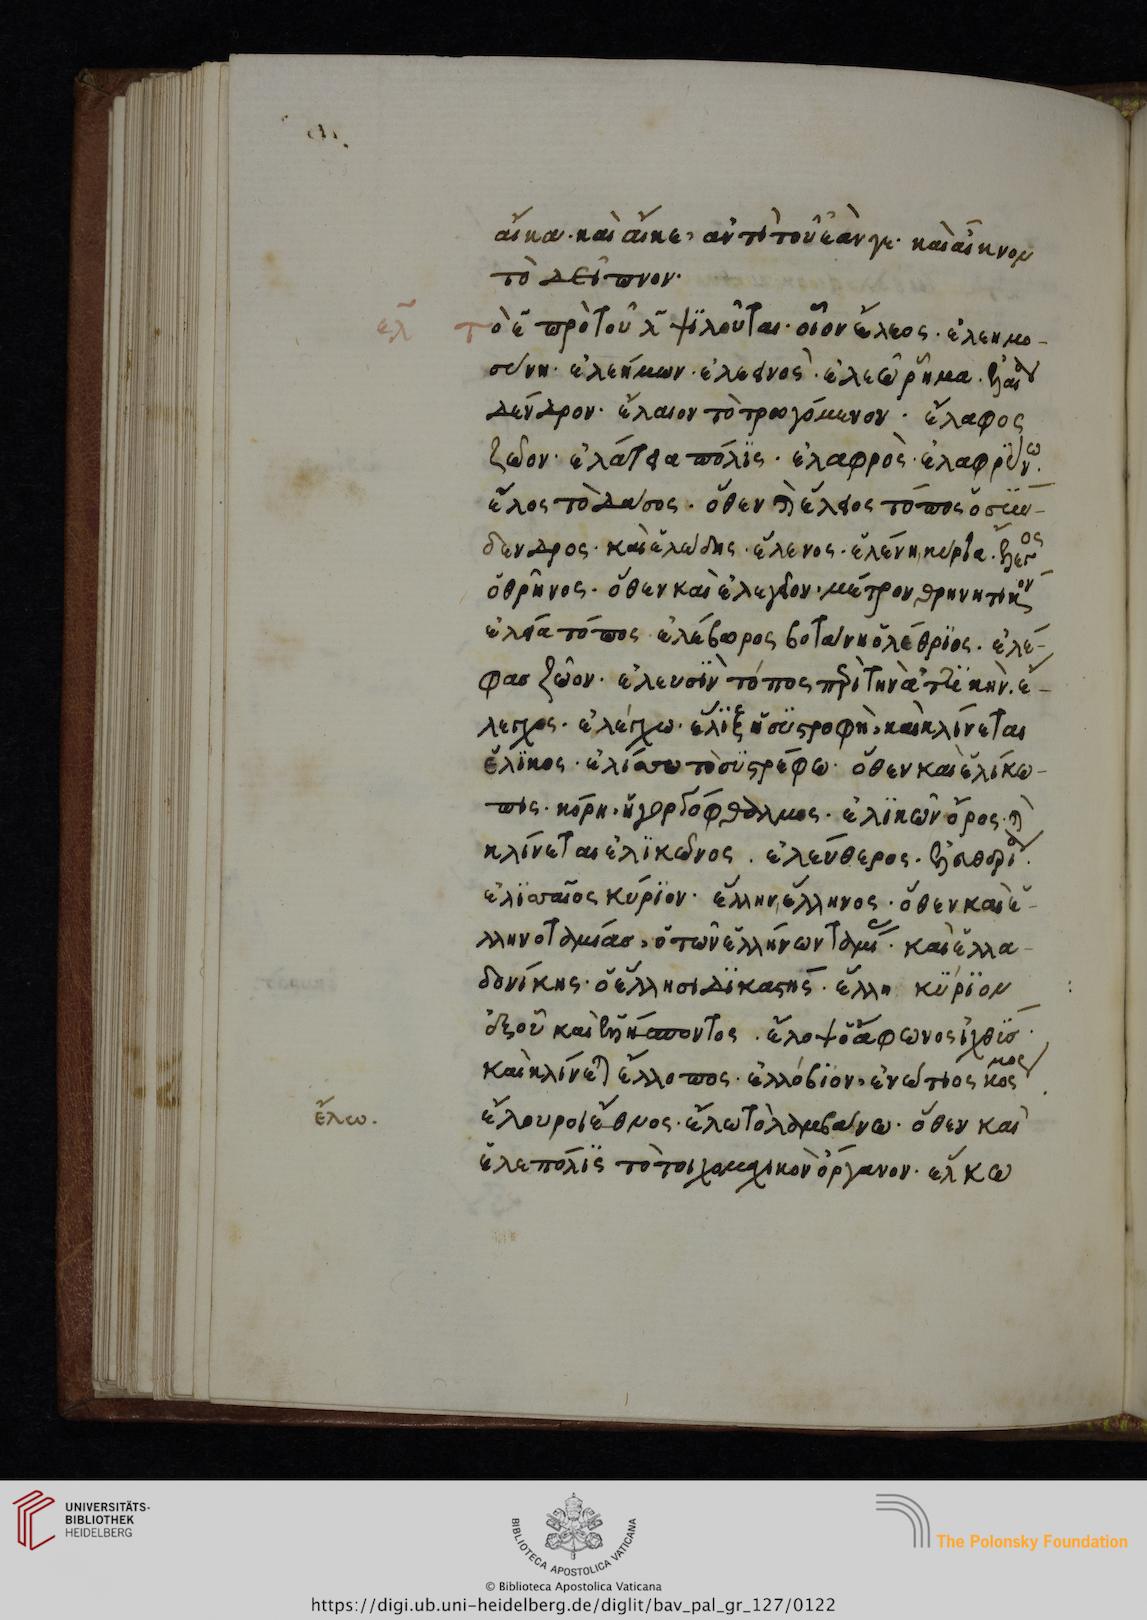 αἴκα· καὶ αἴκε, ἀντὶ τοῦ ἐὰν γε· καὶ αἶκνον
τὸ δεῖπνον·
ελ Τὸ ε πρὸ τοῦ λ ψιλοῦται· οἷον ἔλεος· ἐλεημο-
σύνη· ἐλεήμων· ἐλεεινός· ἐλεῶ ῥῆμα·
δένδρον· ἔλαιον τὸ τρωγόμενον· ἔλαφος
ζῶον· ἐλάτεια πόλις· ἐλαφρὸς· ἐλαφρύνω·
ἕλος τὸ δάσος· ὅθεν ἕλειος τόπος ὁ σύν-
δενδρος· καὶ ἑλώδης· ἕλενος· ἑλένη, κύρια·
ὁ θρῆνος· ὅθεν καὶ ἐλεγεῖον, μέτρον θρηνητικόν
ἐλεία τόπος ἐλέβορος βοτάνη ὀλέθριος· ἐλέ-
φας ζῶον· ἐλευσὶν τόπος περὶ τὴν ἀττικὴν· ἔ-
λεγχος· ἐλέγχω· ἕλιξ ἡ συστροφή, καὶ κλίνεται
ἕλικος· ἑλίσσω τὸ συστρέφω· ὅθεν καὶ ἑλικώ-
πις· κόρη, ἡ γοργόφθαλμος· ἑλικὼν ὄρος·
κλίνεται ἑλικῶνος· ἐλεύθερος·
ἐλισσαῖος κύριον· ἕλλην, ἕλληνος· ὅθεν καὶ ἑ-
λληνοταμίας, ὁ τῶν ἑλλήνων ταμίας· καὶ ἑλλα-
δονίκης· ὁ ἕλλησι δικαστής· ἕλλη κύριον
ἐξ οὗ καὶ ἑλλήσποντος· ἔλοψ ὁ ἄφωνος ἰχθύς·
καὶ κλίνεται ἔλλοπος· ἐλλόβιον, ἐνώτιος κόσμος
ἕλουροι ἔθνος· ἕλω τὸ λαμβάνω· ὅθεν καὶ
ἕλω.
ἑλεπόλις τὸ τοιχομαχικὸν ὄργανον· ἕλκω
UNIVERSITÄTS-
BIBLIOTHEK
HEIDELBERG
BIBLIOTECA APOSTOLICA VATICANA
The Polonsky Foundation
© Biblioteca Apostolica Vaticana
https://digi.ub.uni-heidelberg.de/diglit/bav_pal_gr_127/0122